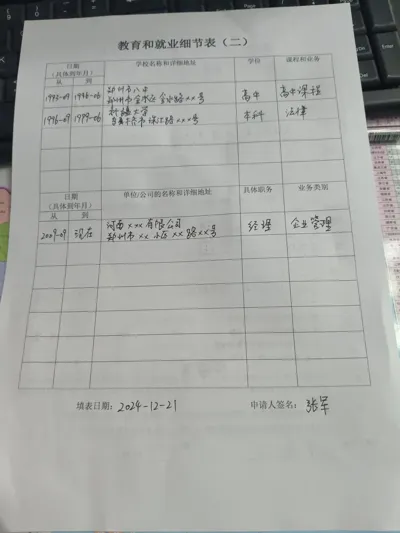 教育和就业细节表（二）
日期
（具体到年月） 学校名称和详细地址 学位 课程和业务
从 到
1993-09 1996-06 郑州市八中
郑州市金水区金水路xx号 高中 高中课程
1996-09 1999-06 新疆大学
乌鲁木齐市 xxx号 本科 法律
日期
（具体到年月） 单位/公司的名称和详细地址 具体职务 业务类别
从 到
2009-09 现在 河南xxx有限公司
郑州市xx小区xx路xx号 经理 企业管理
填表日期：2024-12-21 申请人签名：张军